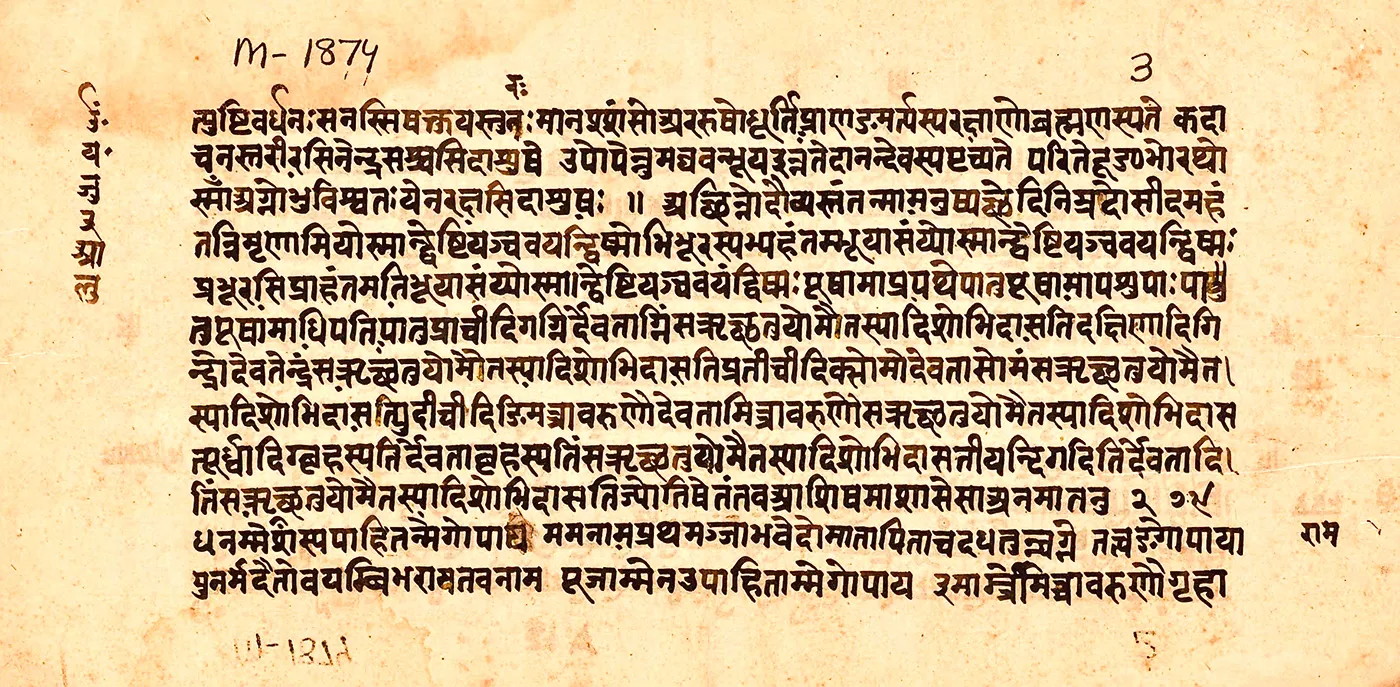 M-1874
3
रः
त्पुष्टिवर्धनः सनस्सिषक्तुयस्तुरः मानश्शँसोअररुषोधूर्तिप्राणङ्मर्त्यस्यरक्षाणोब्रह्मणस्पते कदा
चनस्तरीरसिनेन्द्रसश्चसिदाशुषे उपोपेन्नुमघवन्भूयइन्नुतेदानन्देवस्यपृच्यते परितेदूडभोरथो
स्माँअश्नोतुविश्वतः येनरक्षसिदाशुषः ॥ अच्छिन्नोदैव्यस्तंतन्मामनुष्यच्छेदिनिम्रदोसीदमहं
तन्निमृणामियोस्मान्द्वेष्टियञ्चवयन्द्विष्मोभिभूरस्यभ्यहंतम्भूयासंय्योस्मान्द्वेष्टियञ्चवयन्द्विष्मः
प्रभूरसिप्राहंतमतिभूयासंय्योस्मान्द्वेष्टियञ्चवयंद्विष्मः पूषामाप्रपथेपातुपूषामापशुपाः पा
तुपूषामाधिपतिःपातुप्राचीदिगग्निर्देवताग्निंसऋच्छतुयोमैतस्यादिशोभिदासतिदक्षिणादिगि
न्द्रोदेवतेन्द्रंसऋच्छतुयोमैतस्यादिशोभिदासतिप्रतीचीदिक्सोमोदेवतासोमंसऋच्छतुयोमैत।
स्यादिशोभिदासत्युदीचीदिङिमत्रावरुणौदेवतामित्रावरुणौसऋच्छतुयोमैतस्यादिशोभिदास
त्यूर्ध्वादिग्बृहस्पतिर्देवताबृहस्पतिंसऋच्छतुयोमैतस्यादिशोभिदासतीयन्दिगदितिर्देवतादि।
तिंसऋच्छतुयोमैतस्यादिशोभिदासतिज्योतिषेतंतवआशिषमाशासेसाञनमातनु २
धनम्मेशँस्यपाहितन्मेगोपाय ममनामप्रथमञ्जाभवेदोमातापिताचदधतुर्न्वग्ने तत्त्वङ्गोपाया
पुनर्मदैतोवयम्बिभरामतवनाम पूजाम्मेनउपाहिताम्मेगोपाय इमाम्मेमित्रावरुणौगृहा
राम